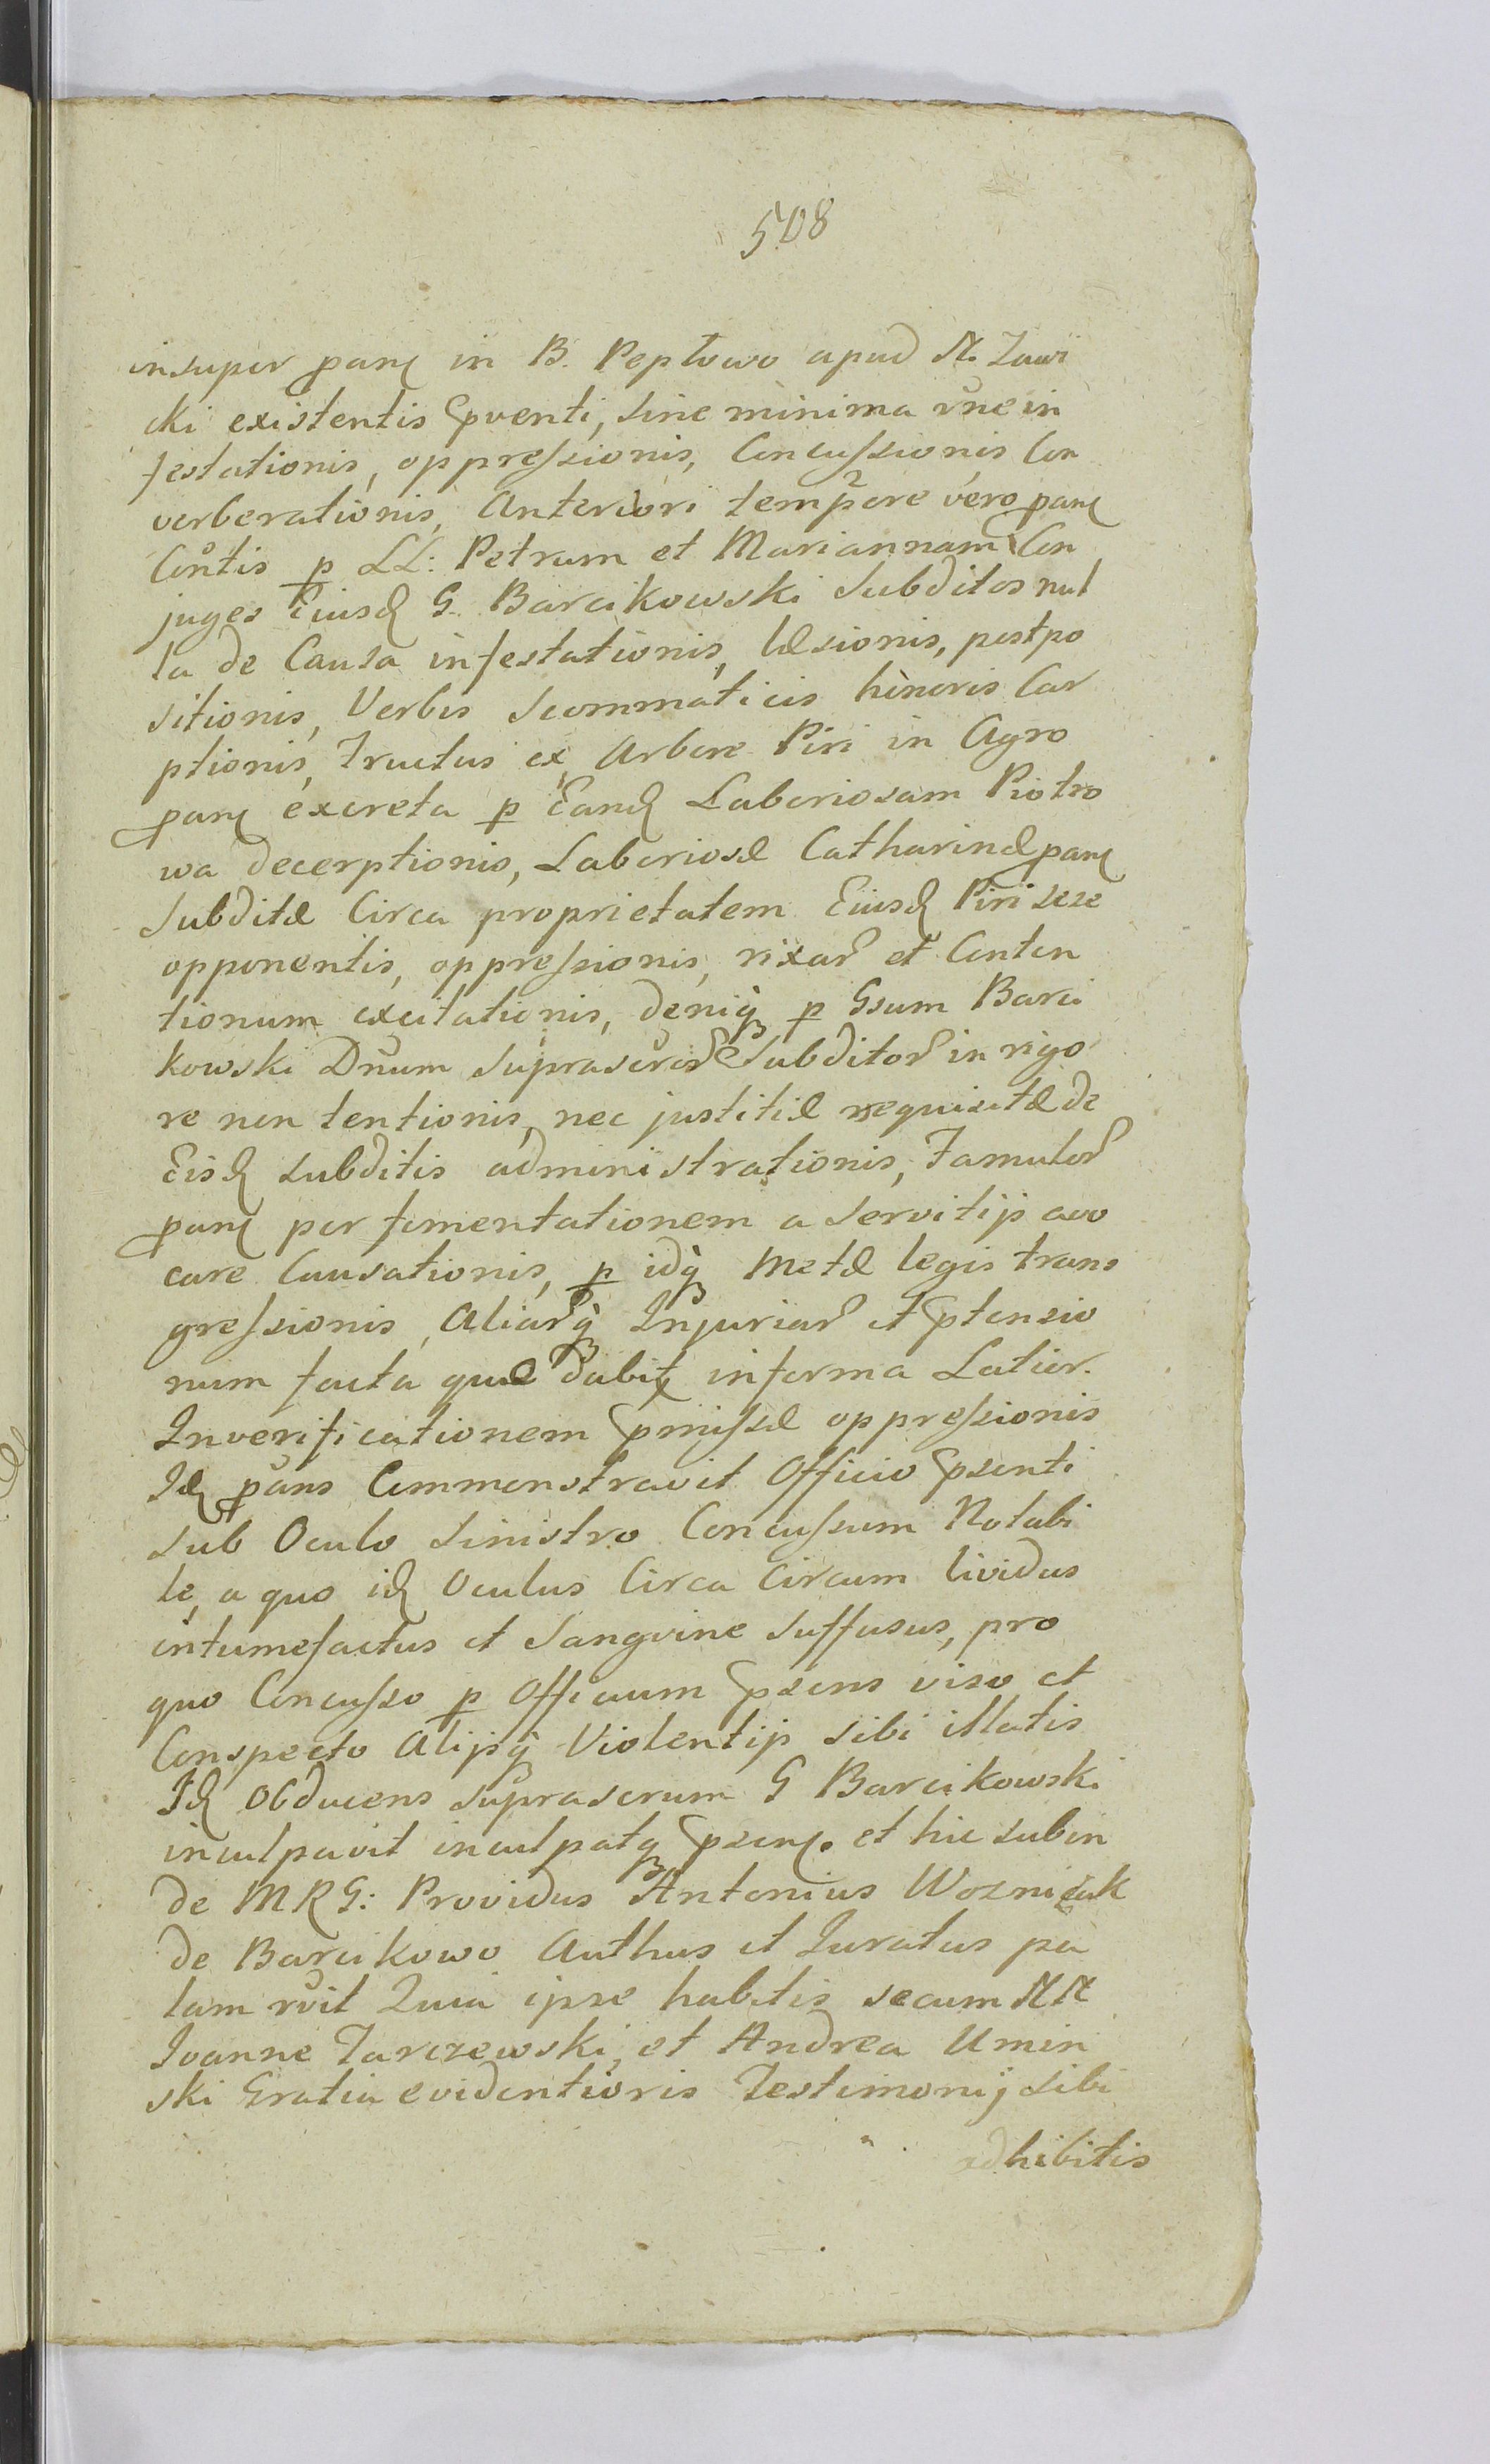 508
insuper panꝭ in B. Pepłowo apud N. Zawi
cki existentis pventi, sine minima rñe in
festationis, oppressionis, Concussionis Con
verberationis, Anteriori tempore vero panꝭ
Coñtis p LL: Petrum et Mariannam Con
juges Eiusd G. Barcikowski Subditos nul
la de Causa infestationis, læsionis, postpo
sitionis, Verbis Scommaticis honoris Car
ptionis, Fructus ex Arbore Piri in Agro
panꝭ excreta p Eand Laboriosam Piotro
wa decerptionis, Laboriosæ Catharinæ panꝭ
Subditæ Circa proprietatem Eiusd Piri sese
opponentis, oppressionis, rixar et Conten
tionum excitationis, deniq p Gsum Barci
kowski Dnum suprascror Subditor in rigo
re non tentionis, nec justitiæ requisitæ de
Eisd subditis administrationis, Famulor
panꝭ per fomentationem a servitijs avo
care Causationis, p idq Metæ legis trans
gressionis, Aliarq Injuriar et ptensio
num facta quæ dabit in forma Latior.
In verificationem pmissæ oppressionis
Id pans Commonstravit Officio psenti
sub Oculo sinistro Concussum Notabi
le, a quo id Oculus Circa Circum lividus
intumefactus et Sangvine suffusus, pro
quo Concusso p Officium psens viso et
Conspecto Alijsq Violentijs sibi illatis
Id Obducens suprascrum G Barcikowski
inculpavit inculpatq psenꝭ. et hic subin
de MRG: Providus Antonius Wozniak
de Barcikowo Authus et Juratus pa
lam rvit Quia ipse habitis secum NN
Joanne Tarczewski, et Andrea Umin
ski Gratia evidentioris Testimonij sibi
adhibitis